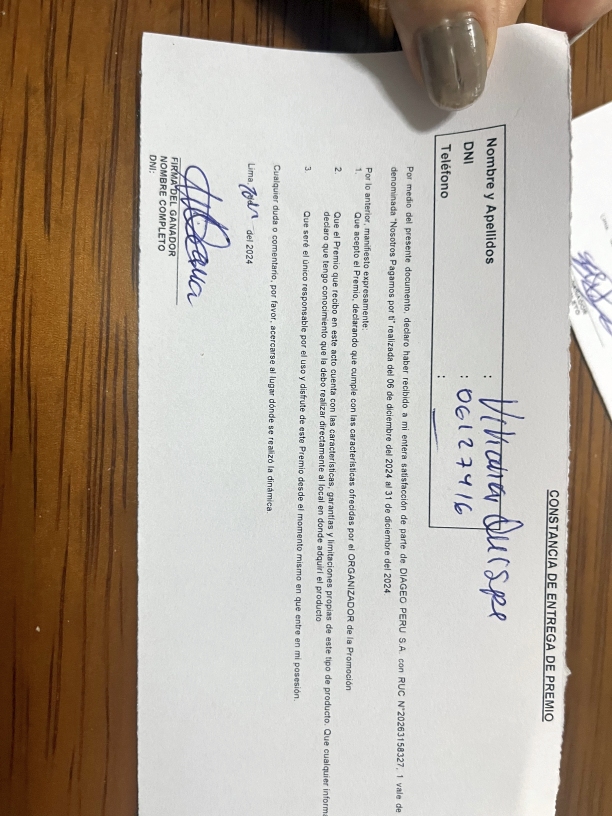 CONSTANCIA DE ENTREGA DE PREMIO
Nombre y Apellidos : Quispe
DNI : 06127416
Teléfono : —
Por medio del presente documento, declaro haber recibido a mi entera satisfacción de parte de DIAGEO PERU S.A. con RUC N°20263158327, 1 vale de
denominada "Nosotros Pagamos por ti" realizada del 06 de diciembre del 2024 al 31 de diciembre del 2024.
Por lo anterior, manifiesto expresamente:
1. Que acepto el Premio, declarando que cumple con las características ofrecidas por el ORGANIZADOR de la Promoción
2. Que el Premio que recibo en este acto cuenta con las características, garantías y limitaciones propias de este tipo de producto. Que cualquier inform
declaro que tengo conocimiento que la debo realizar directamente al local en donde adquirí el producto
3. Que seré el único responsable por el uso y disfrute de este Premio desde el momento mismo en que entre en mi posesión.
Cualquier duda o comentario, por favor, acercarse al lugar dónde se realizó la dinámica.
Lima, del 2024
FIRMA DEL GANADOR
NOMBRE COMPLETO
DNI: